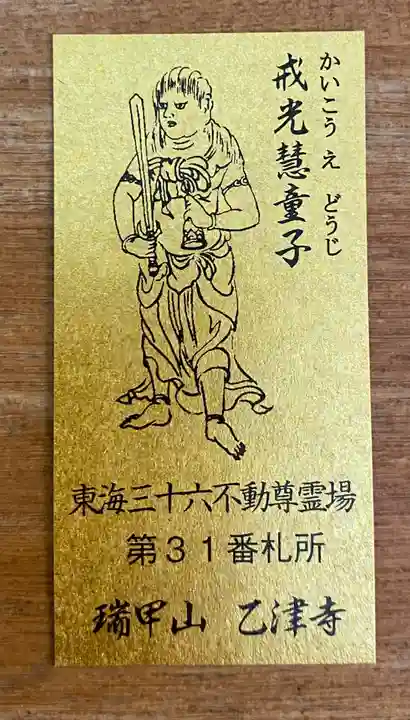 戒光慧童子
かいこうえどうじ
東海三十六不動尊霊場
第31番札所
瑞甲山 乙津寺